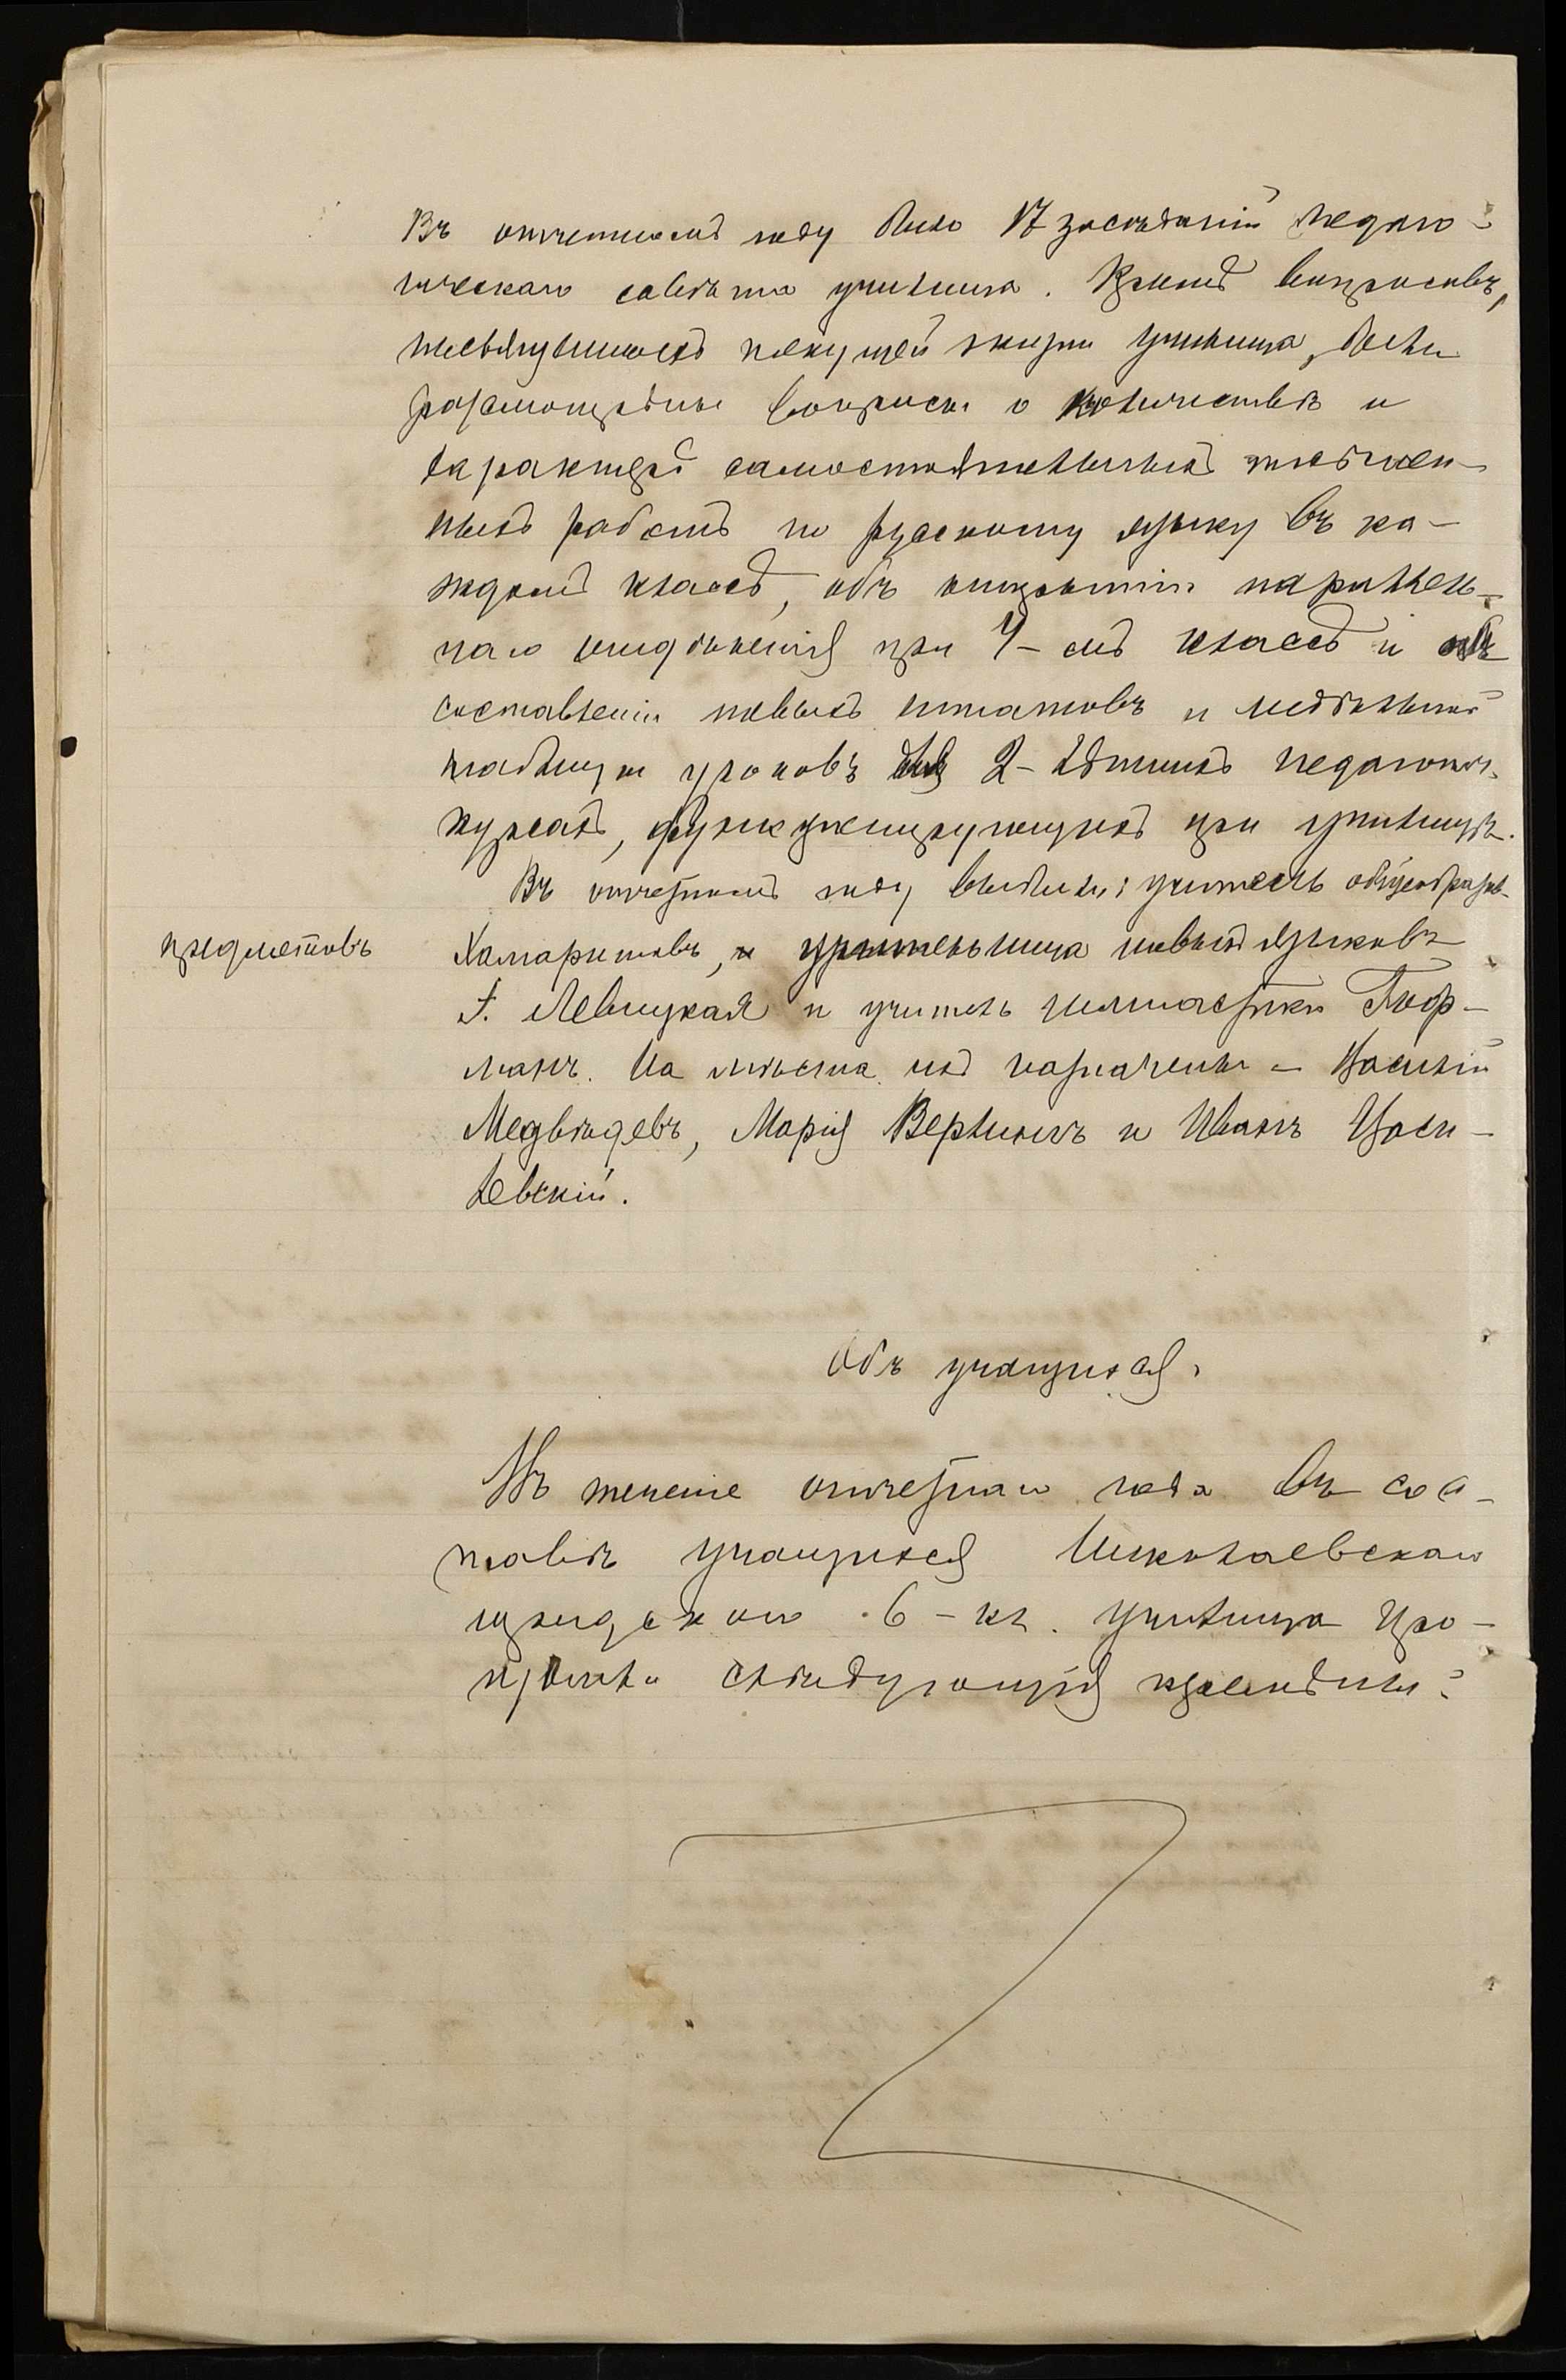 Въ отчетномъ году было 17 засѣданій педаго-
гическаго совѣта училища. Кромѣ вопросовъ,
текущей жизни училища, были
разсмотрѣны вопросы о количествѣ и
характерѣ самостоятельныхъ письмен-
ныхъ работъ по русскому языку въ ка-
ждомъ классѣ, объ открытіи параллель-
наго отдѣленія при 4-омъ классѣ и объ
составленіи новыхъ штатовъ и недѣльной
таблицы уроковъ для 2-лѣтнихъ педагогич.
курсахъ, функціонирующихъ при училищѣ.
Въ отчетномъ году выбыли: учитель общеобразов.
предметовъ
Хамаритовъ, учительница новыхъ языковъ
Левицкая и учитель гимнастики Гоф-
манъ. На мѣста ихъ назначены – Василій
Медвѣдевъ, Марія Верлингъ и Иванъ Васи-
левскій.
Объ учащихся.
Въ теченіе отчетнаго года въ сос-
тавѣ учащихся Николаевскаго
городского 6-кл. училища про-
изошли слѣдующія перемѣны: